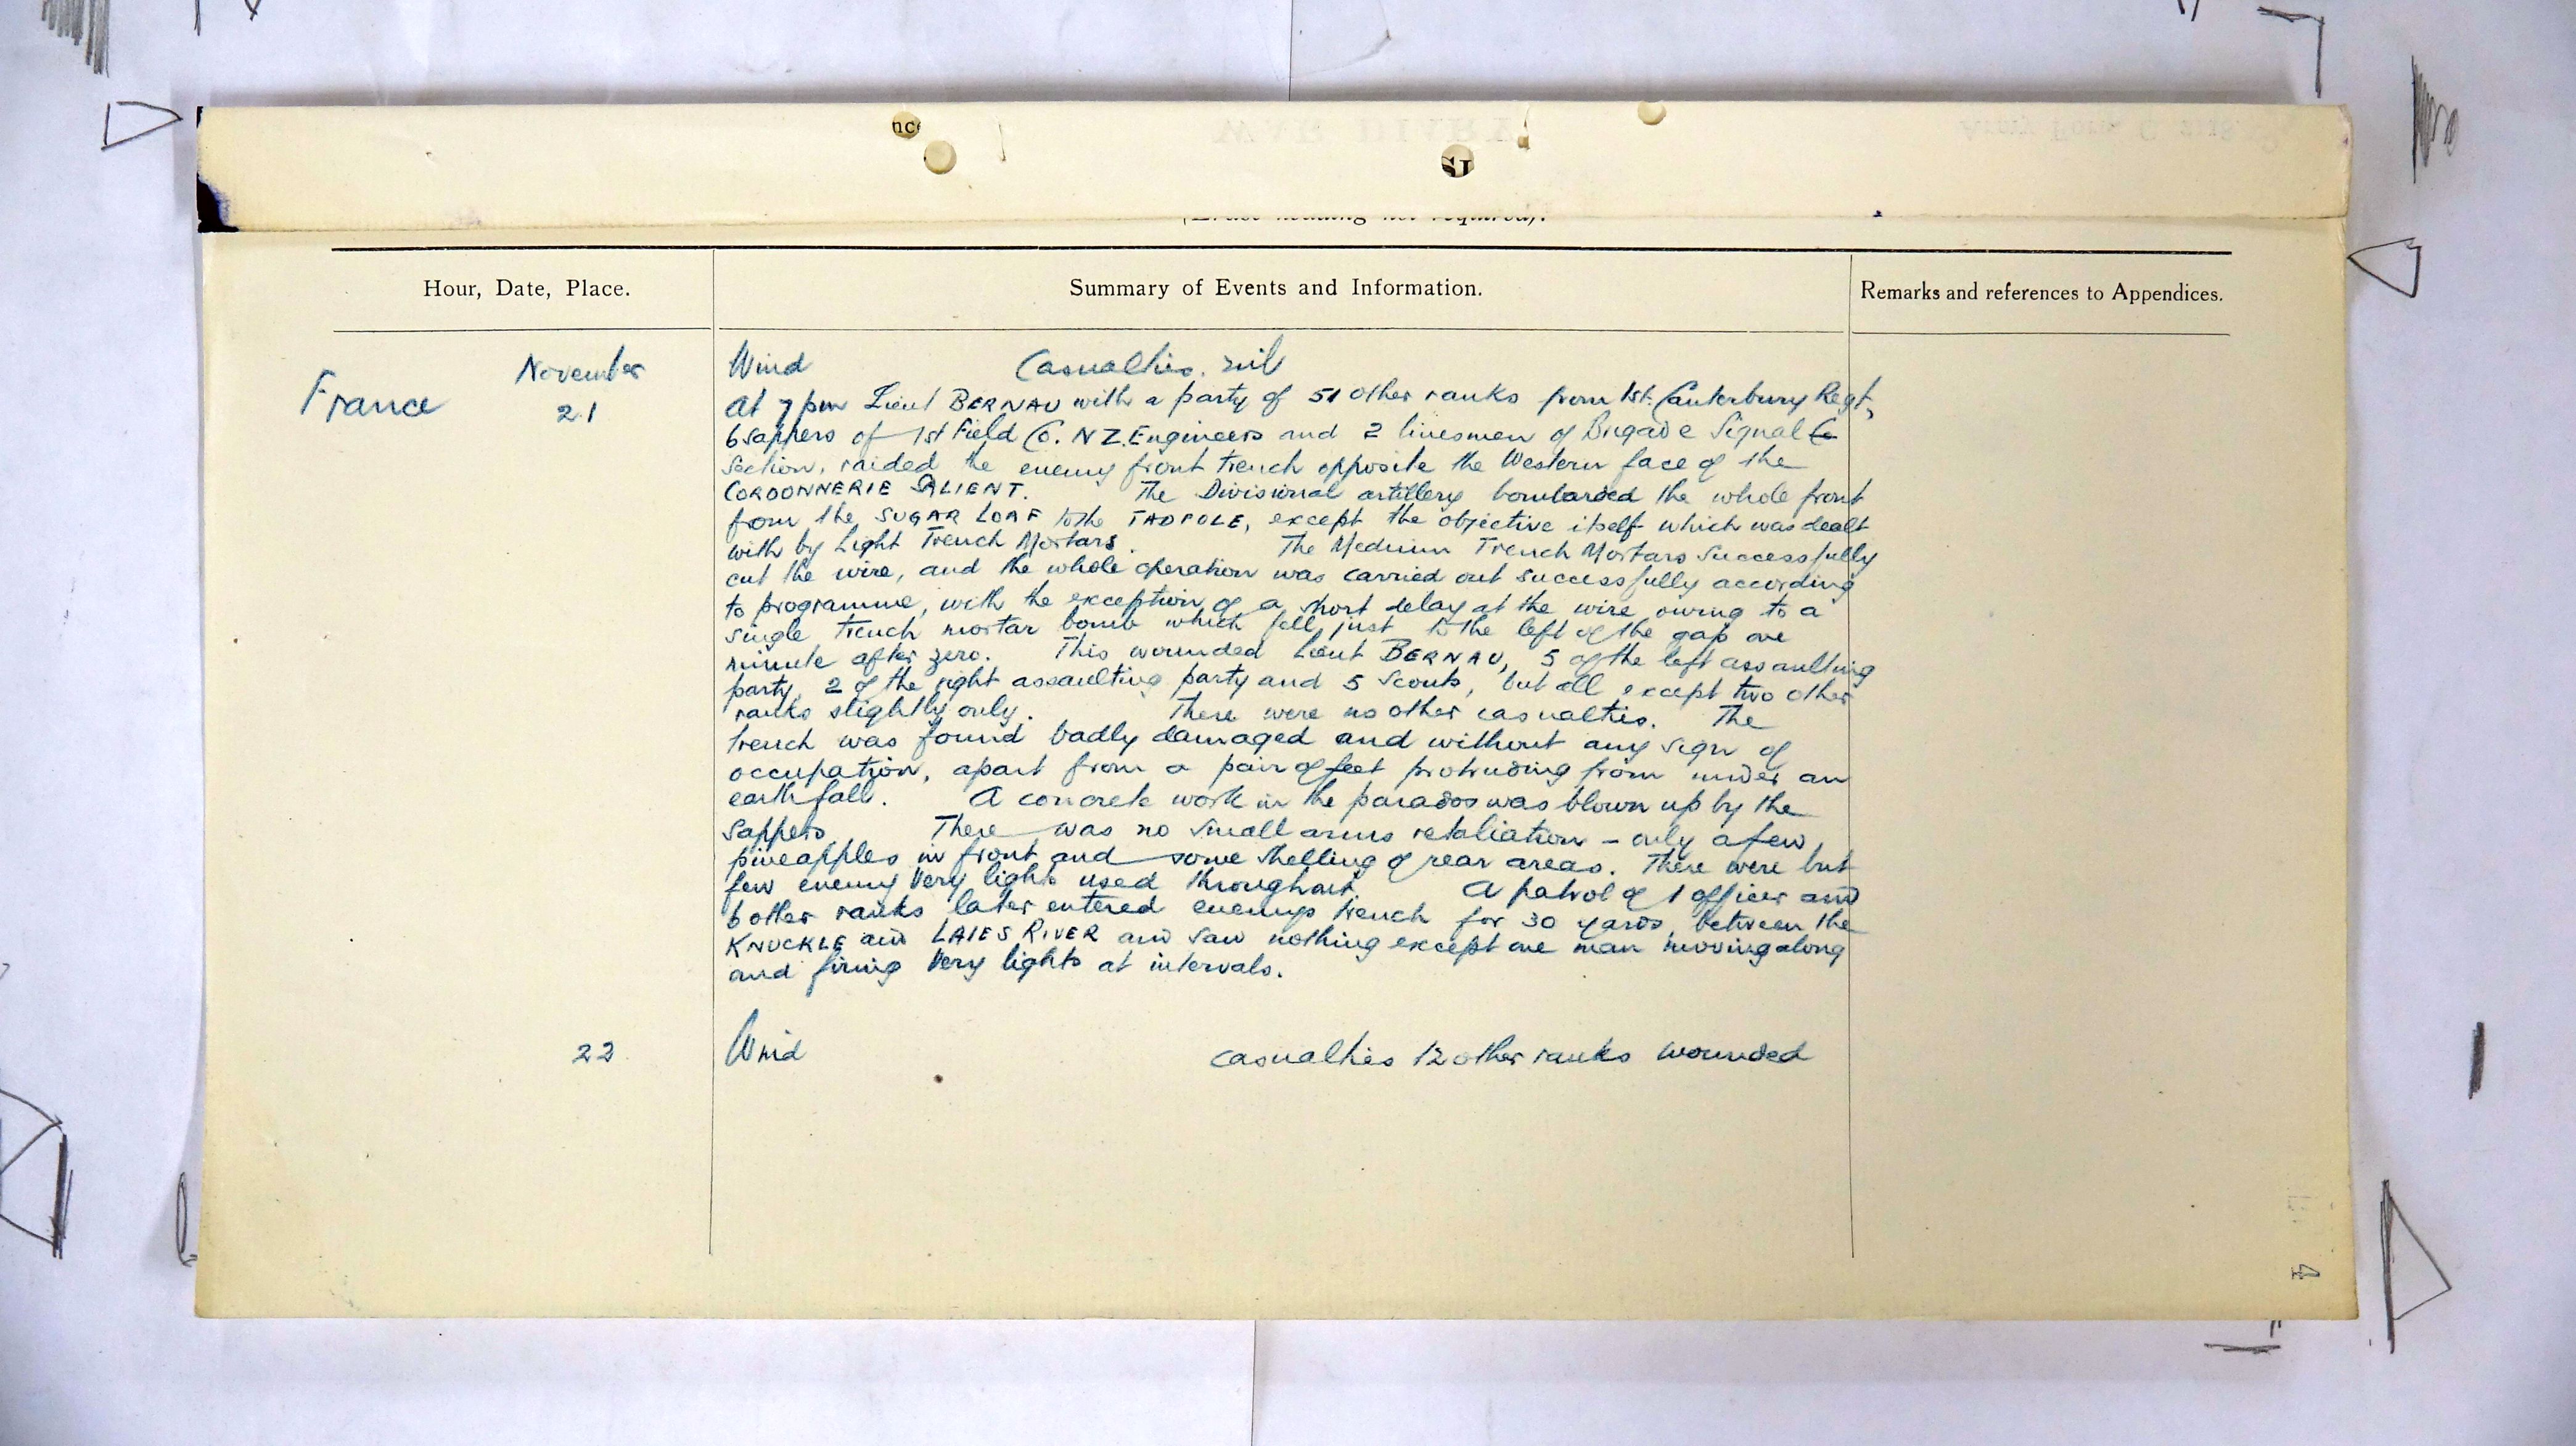 nce
SI
(Erase heading not required).
Hour, Date, Place.
Summary of Events and Information.
Remarks and references to Appendices.
France
November
21
Wind Casualties. nil
At 7 pm Lieut BERNAU with a party of 51 other ranks from 1st. Canterbury Regt,
6 sappers of 1st Field Co. N Z. Engineers and 2 linesmen of Brigade Signal Co
Section, raided the enemy front trench opposite the Western face of the
CORDONNERIE SALIENT. The Divisional artillery bombarded the whole front
from the SUGAR LOAF to the TADPOLE, except the objective itself which was dealt
with by Light Trench Mortars. The Medium Trench Mortars successfully
cut the wire, and the whole operation was carried out successfully according
to programme, with the exception of a short delay at the wire owing to a
single trench mortar bomb which fell just to the left of the gap one
minute after zero. This wounded Lieut BERNAU, 5 of the left assaulting
party, 2 of the right assaulting party and 5 scouts, but all except two other
ranks slightly only. There were no other casualties. The
trench was found badly damaged and without any sign of
occupation, apart from a pair of feet protruding from under an
earth fall. A concrete work in the parados was blown up by the
sappers There was no small arms retaliation - only a few
pineapples in front and some shelling of rear areas. There were but
few enemy Very lights used throughout. A patrol of 1 officer and
6 other ranks later entered enemys trench for 30 yards, between the
KNUCKLE and LAIES RIVER and saw nothing except one man moving along
and firing Very lights at intervals.
22 Wind casualties 12 other ranks wounded
4